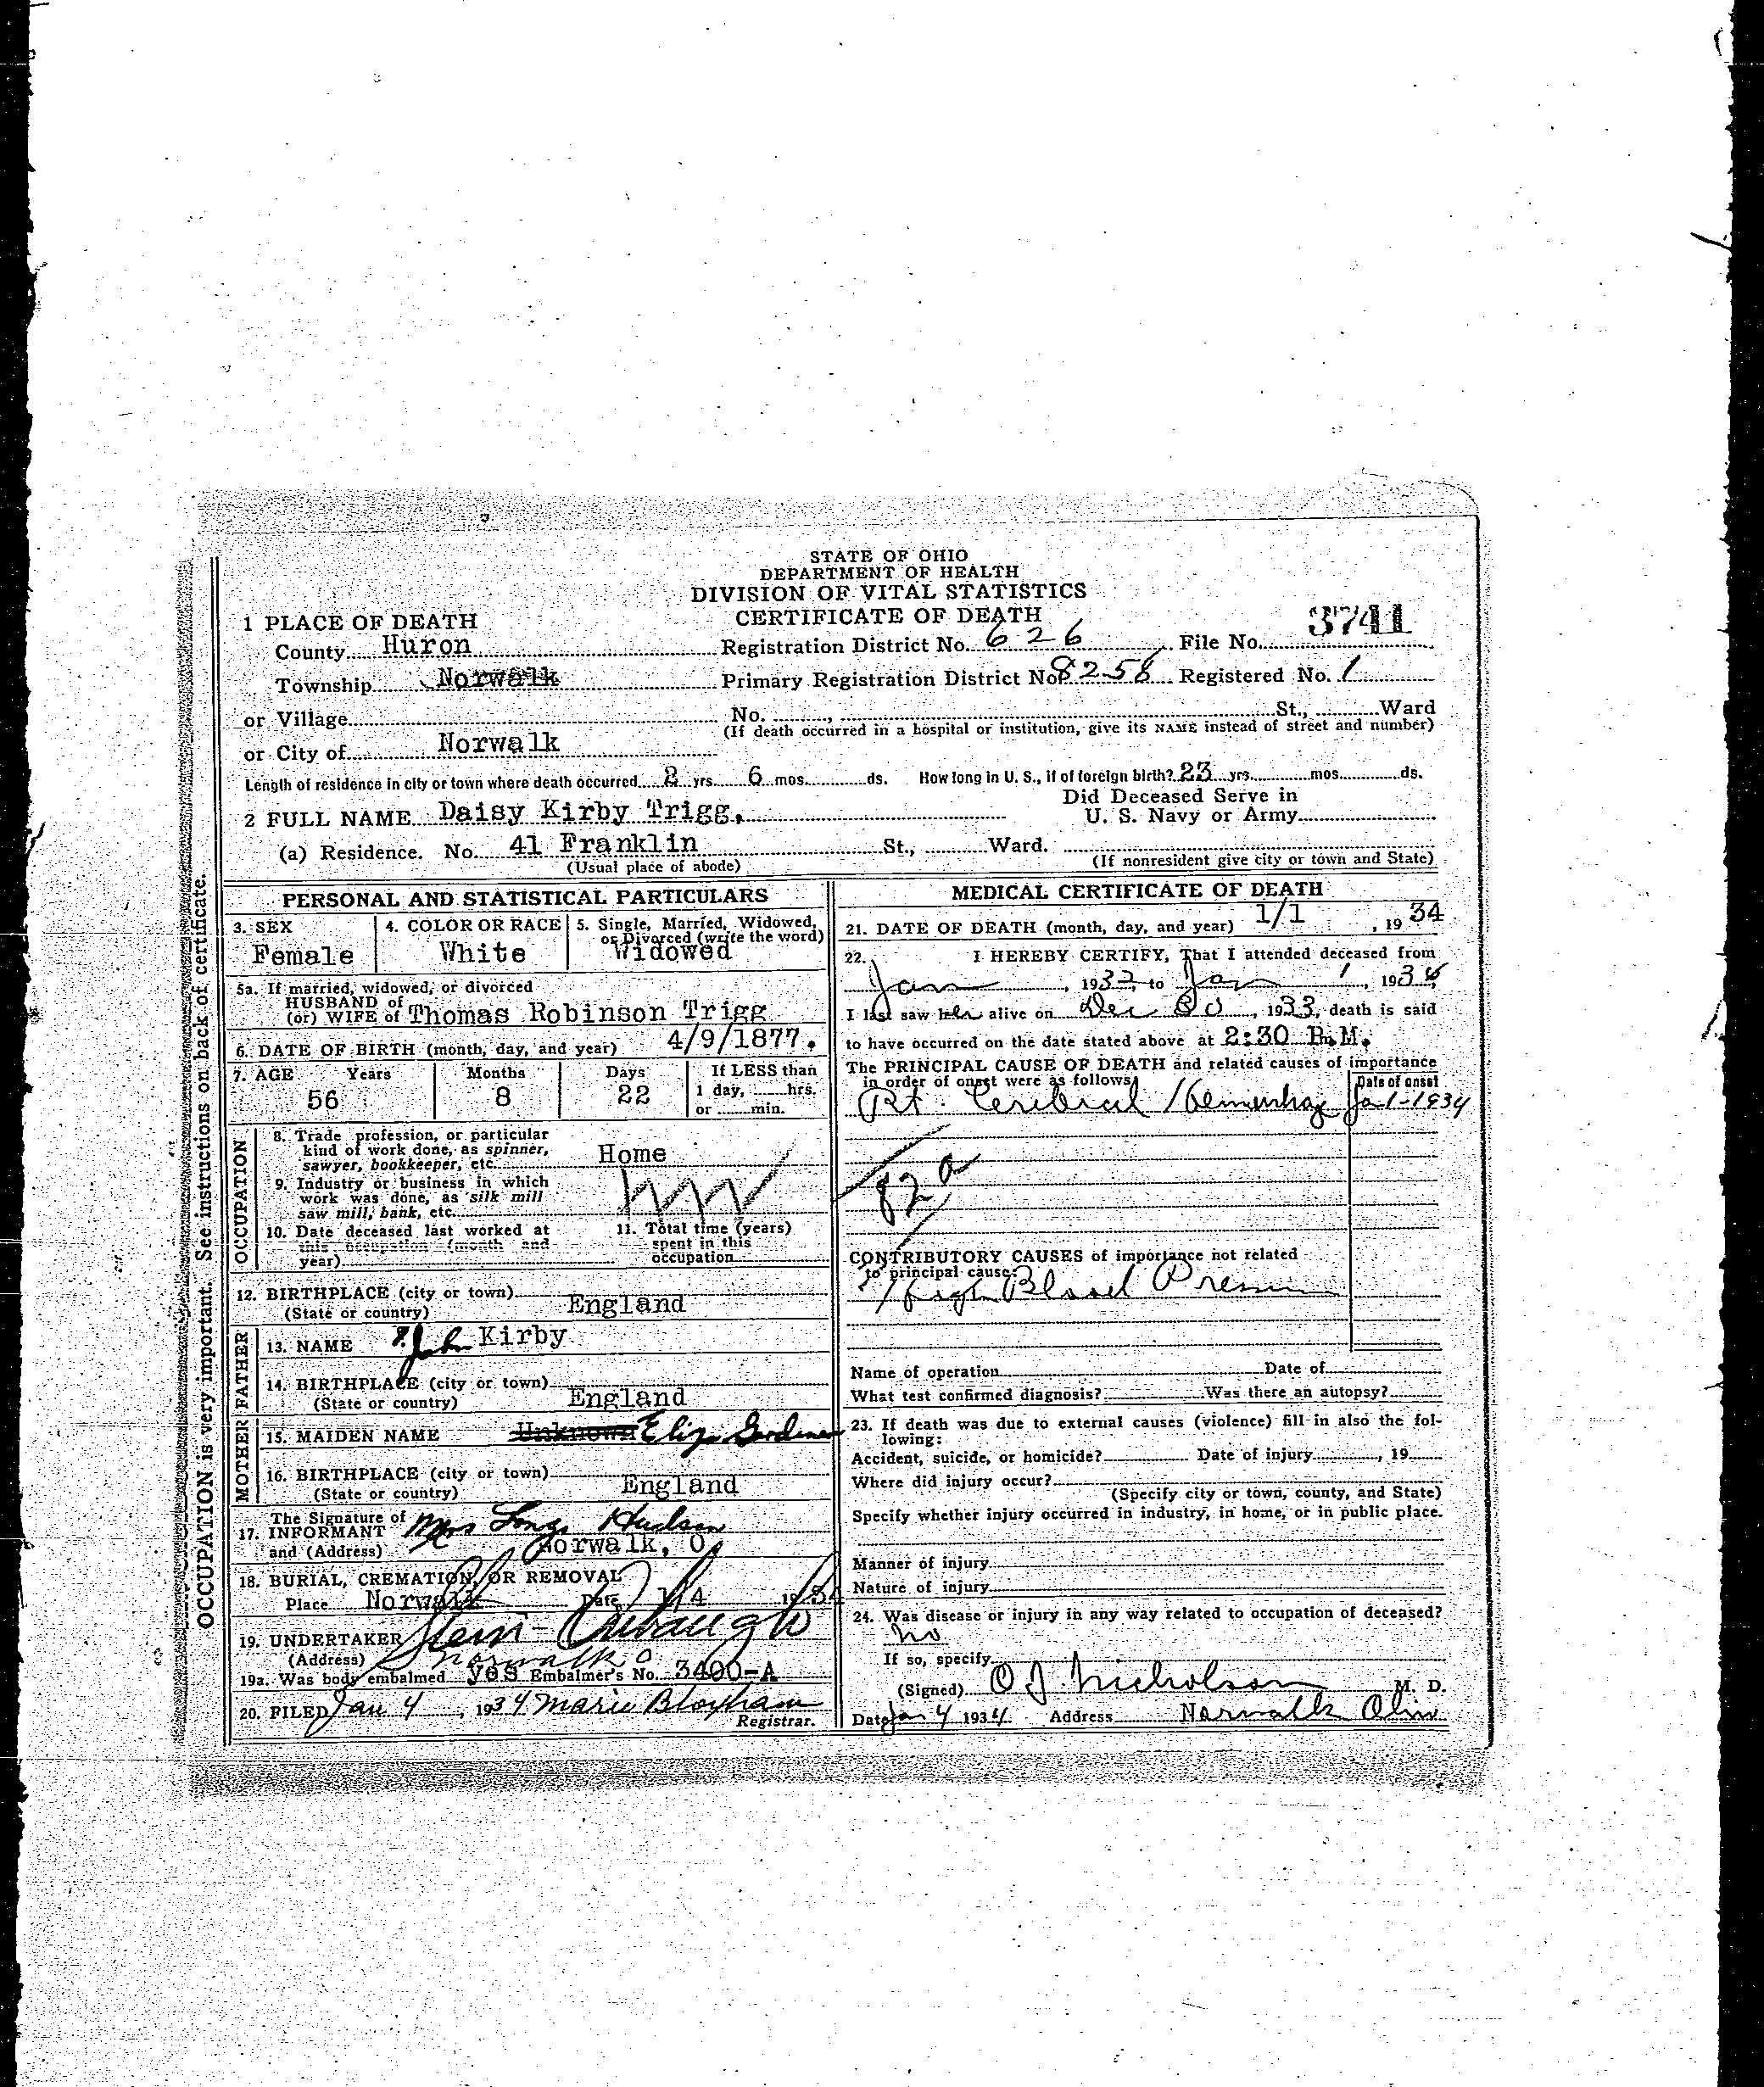 STATE OF OHIO
DEPARTMENT OF HEALTH
DIVISION OF VITAL STATISTICS
CERTIFICATE OF DEATH
3741
1 PLACE OF DEATH
County Huron Registration District No. 626 File No.
Township Norwalk Primary Registration District No. 8258 Registered No. 1
or Village No. , St., Ward
(If death occurred in a hospital or institution, give its NAME instead of street and number)
or City of Norwalk
Length of residence in city or town where death occurred 2 yrs. 6 mos. ds. How long in U. S., if of foreign birth? 23 yrs. mos. ds.
Did Deceased Serve in
U. S. Navy or Army
2 FULL NAME Daisy Kirby Trigg,
(a) Residence. No. 41 Franklin St., Ward.
(Usual place of abode) (If nonresident give city or town and State)
OCCUPATION is very important. See instructions on back of certificate.
PERSONAL AND STATISTICAL PARTICULARS
3. SEX
Female
4. COLOR OR RACE
White
5. Single, Married, Widowed,
or Divorced (write the word)
Widowed
5a. If married, widowed, or divorced
HUSBAND of
(or) WIFE of Thomas Robinson Trigg
6. DATE OF BIRTH (month, day, and year) 4/9/1877.
7. AGE Years Months Days If LESS than
1 day, hrs.
or min.
56 8 22
OCCUPATION
8. Trade profession, or particular
kind of work done, as spinner,
sawyer, bookkeeper, etc. Home
9. Industry or business in which
work was done, as silk mill
saw mill, bank, etc.
10. Date deceased last worked at
this occupation (month and
year)
11. Total time (years)
spent in this
occupation
12. BIRTHPLACE (city or town)
(State or country) England
FATHER
13. NAME John Kirby
14. BIRTHPLACE (city or town)
(State or country) England
MOTHER
15. MAIDEN NAME Unknown Eliza Gardener
16. BIRTHPLACE (city or town)
(State or country) England
The Signature of
17. INFORMANT Mrs Hudson
and (Address) Norwalk, O.
18. BURIAL, CREMATION, OR REMOVAL
Place Norwalk Date 1/4 1934
19. UNDERTAKER
(Address) Norwalk O
19a. Was body embalmed yes Embalmer's No. 3400-A
20. FILED Jan 4, 1934 Marie Bloxham
Registrar.
MEDICAL CERTIFICATE OF DEATH
21. DATE OF DEATH (month, day, and year) 1/1, 1934
22. I HEREBY CERTIFY, That I attended deceased from
Jan, 1933, to Jan 1, 1934
I last saw her alive on Dec 30, 1933, death is said
to have occurred on the date stated above at 2:30 P.M.
The PRINCIPAL CAUSE OF DEATH and related causes of importance
in order of onset were as follows:
Date of onset
Rt. Cerebral Hemorrhage Ja-1-1934
82a
CONTRIBUTORY CAUSES of importance not related
to principal cause:
High Blood Pressure
Name of operation Date of
What test confirmed diagnosis? Was there an autopsy?
23. If death was due to external causes (violence) fill in also the fol-
lowing:
Accident, suicide, or homicide? Date of injury , 19
Where did injury occur?
(Specify city or town, county, and State)
Specify whether injury occurred in industry, in home, or in public place.
Manner of injury
Nature of injury
24. Was disease or injury in any way related to occupation of deceased?
no
If so, specify
(Signed) O.J. Nicholson M. D.
Date Jan 4 1934. Address Norwalk Ohio